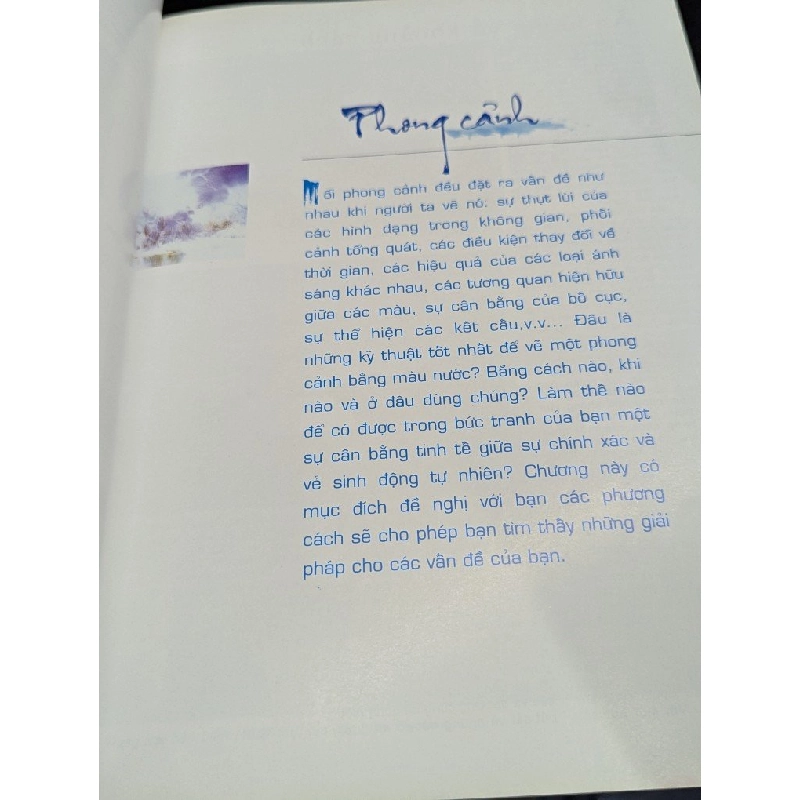 Phong cảnh
Mỗi phong cảnh đều đặt ra vấn đề như
nhau khi người ta vẽ nó: sự thụt lùi của
các hình dạng trong không gian, phối
cảnh tổng quát, các điều kiện thay đổi về
thời gian, các hiệu quả của các loại ánh
sáng khác nhau, các tương quan hiện hữu
giữa các màu, sự cân bằng của bố cục,
sự thể hiện các kết cấu,v.v... Đâu là
những kỹ thuật tốt nhất để vẽ một phong
cảnh bằng màu nước? Bằng cách nào, khi
nào và ở đâu dùng chúng? Làm thế nào
để có được trong bức tranh của bạn một
sự cân bằng tinh tế giữa sự chính xác và
vẻ sinh động tự nhiên? Chương này có
mục đích đề nghị với bạn các phương
cách sẽ cho phép bạn tìm thấy những giải
pháp cho các vấn đề của bạn.